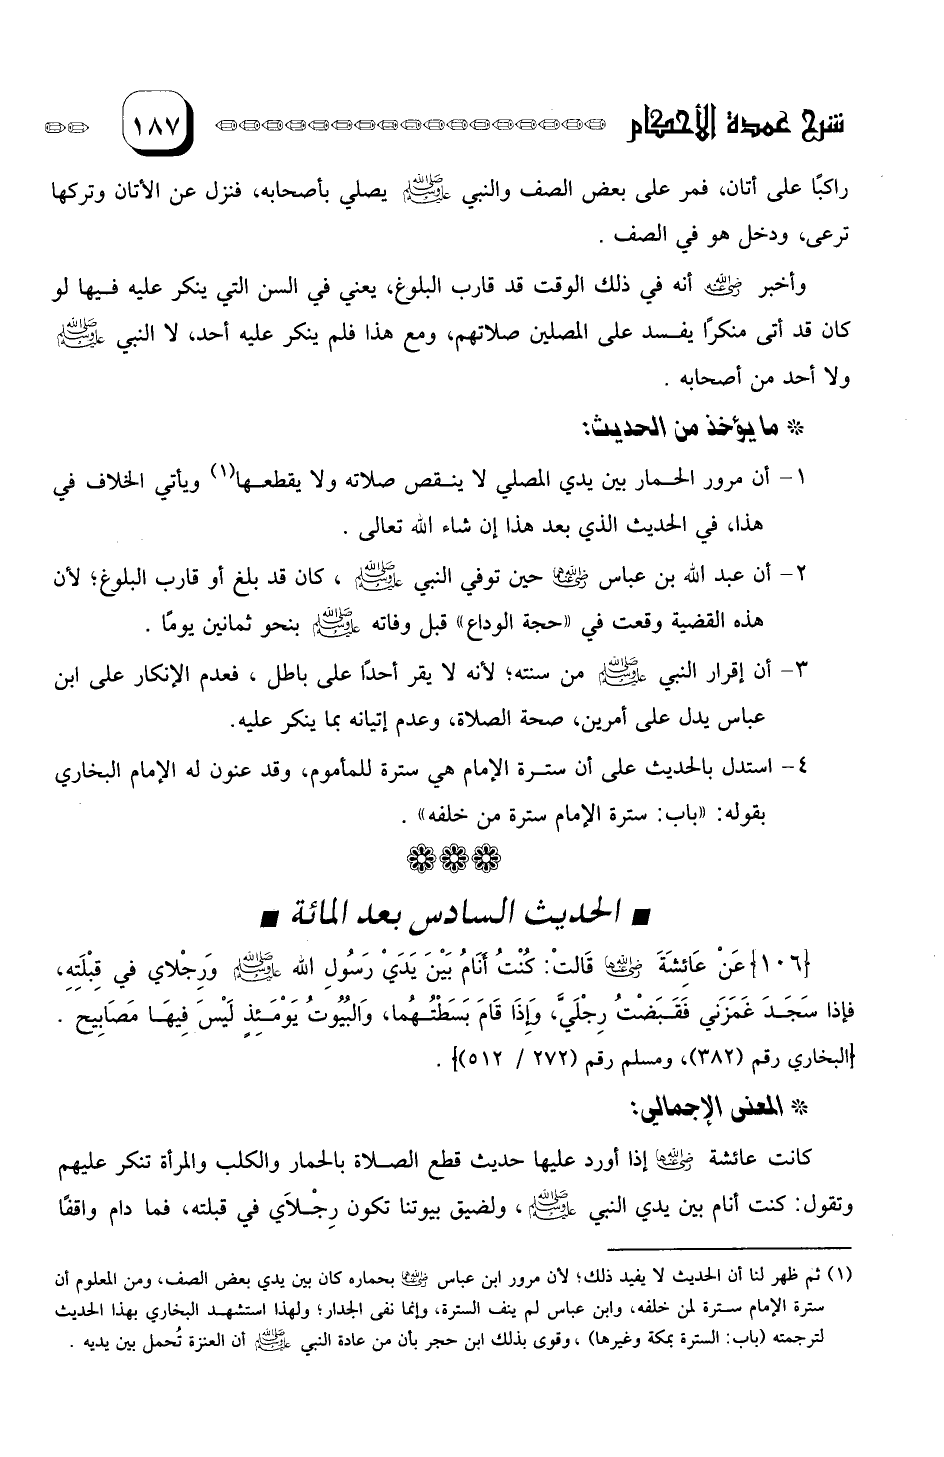 شرح عمدة الأحكام ١٨٧
راكبًا على أتان، فمر على بعض الصف والنبي ﷺ يصلي بأصحابه، فنزل عن الأتان وتركها
ترعى، ودخل هو في الصف .
وأخبر رضي الله عنه أنه في ذلك الوقت قد قارب البلوغ، يعني في السن التي ينكر عليه فيها لو
كان قد أتى منكرًا يفسد على المصلين صلاتهم، ومع هذا فلم ينكر عليه أحد، لا النبي ﷺ
ولا أحد من أصحابه .
* ما يؤخذ من الحديث:
١- أن مرور الحمار بين يدي المصلي لا ينقص صلاته ولا يقطعها(١) ويأتي الخلاف في
هذا، في الحديث الذي بعد هذا إن شاء الله تعالى .
٢- أن عبد الله بن عباس رضي الله عنهما حين توفي النبي ﷺ ، كان قد بلغ أو قارب البلوغ؛ لأن
هذه القضية وقعت في «حجة الوداع» قبل وفاته ﷺ بنحو ثمانين يومًا .
٣- أن إقرار النبي ﷺ من سنته؛ لأنه لا يقر أحدًا على باطل ، فعدم الإنكار على ابن
عباس يدل على أمرين، صحة الصلاة، وعدم إتيانه بما ينكر عليه.
٤- استدل بالحديث على أن سترة الإمام هي سترة للمأموم، وقد عنون له الإمام البخاري
بقوله: «باب: سترة الإمام سترة من خلفه» .
■ الحديث السادس بعد المائة ■
{١٠٦}عَنْ عَائِشَةَ رضي الله عنها قَالَتْ: كُنْتُ أَنَامُ بَيْنَ يَدَيْ رَسُولِ الله ﷺ وَرِجْلاي في قِبْلَتِهِ،
فإذا سَجَدَ غَمَزَني فَقَبَضْتُ رِجْلَيَّ، وَإِذَا قَامَ بَسَطْتُهُما، وَالبُيُوتُ يَوْمَئِذٍ لَيْسَ فيهَا مَصَابِيح .
{البخاري رقم (٣٨٢)، ومسلم رقم (٢٧٢ / ٥١٢)} .
* المعنى الإجمالي:
كانت عائشة رضي الله عنها إذا أورد عليها حديث قطع الصلاة بالحمار والكلب والمرأة تنكر عليهم
وتقول: كنت أنام بين يدي النبي ﷺ ، ولضيق بيوتنا تكون رِجْلاَي في قبلته، فما دام واقفًا
(١) ثم ظهر لنا أن الحديث لا يفيد ذلك؛ لأن مرور ابن عباس رضي الله عنهما بحماره كان بين يدي بعض الصف، ومن المعلوم أن
سترة الإمام سترة لمن خلفه، وابن عباس لم ينف السترة، وإنما نفى الجدار؛ ولهذا استشهد البخاري بهذا الحديث
لترجمته (باب: السترة بمكة وغيرها) ، وقوى بذلك ابن حجر بأن من عادة النبي ﷺ أن العنزة تُحمل بين يديه .